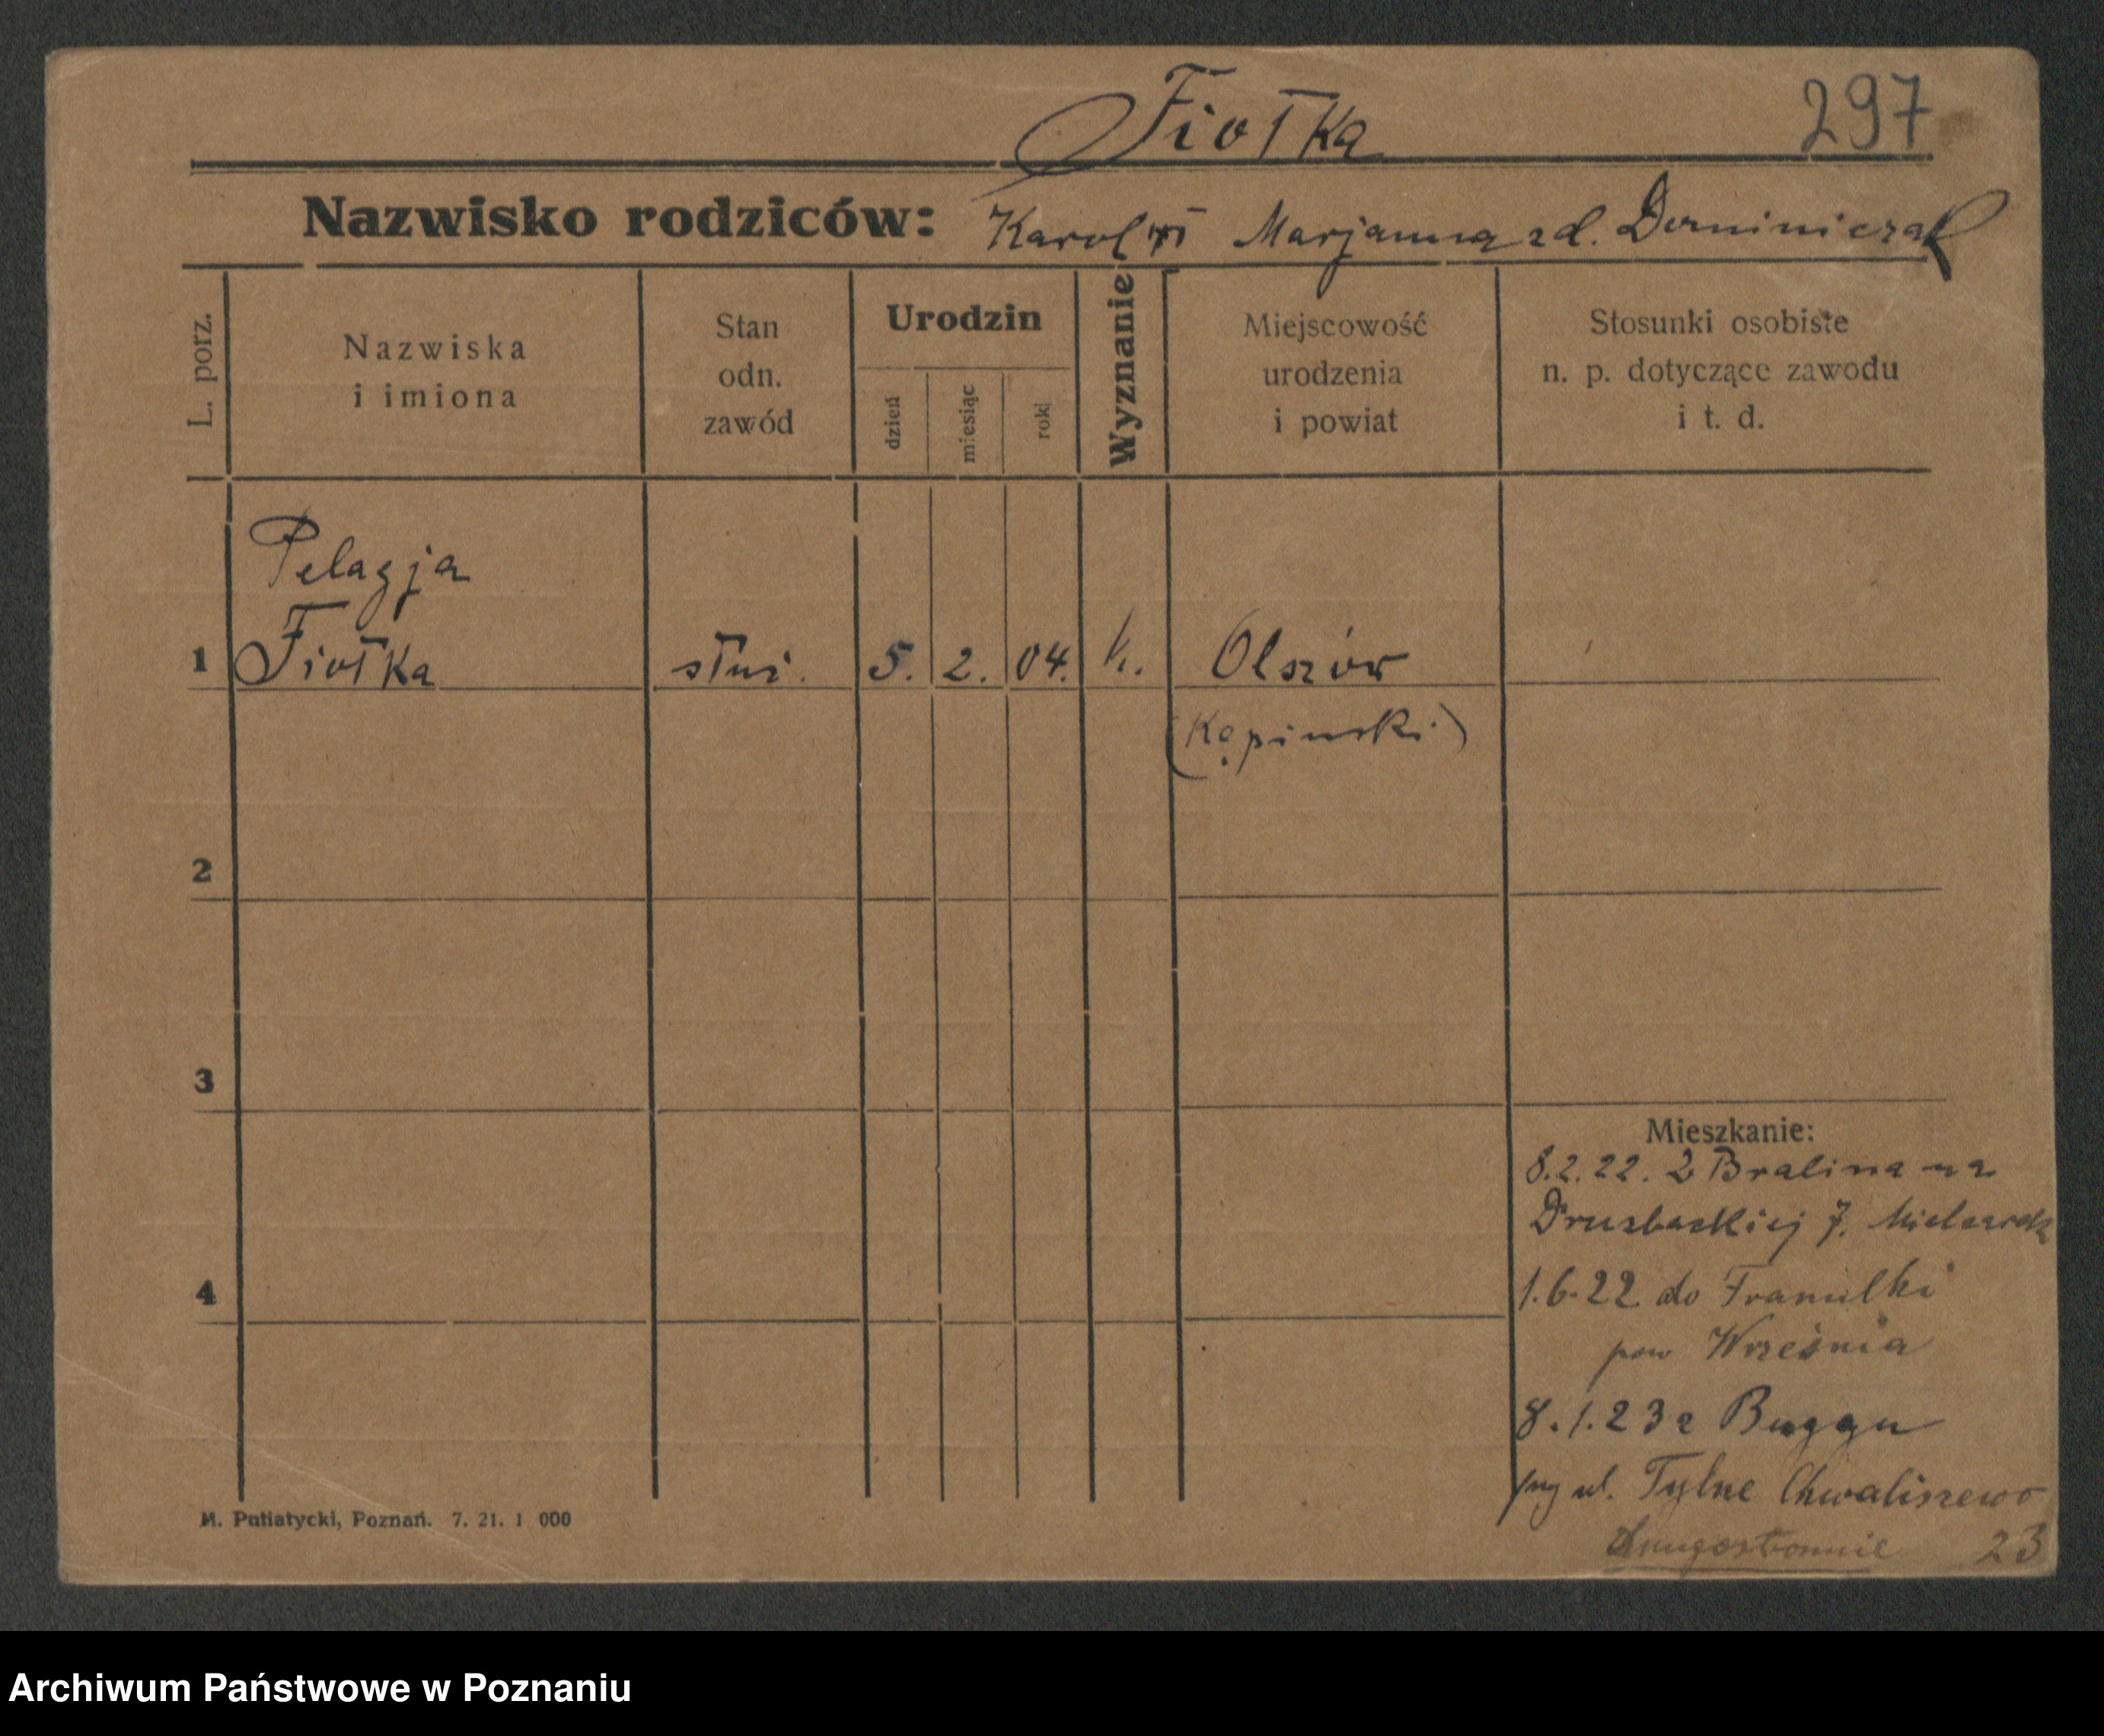 Fiołka
297
Nazwisko rodziców: Karol i Marjanna zd. Dominiczak
L. porz.
Nazwiska
i imiona
Stan
odn.
zawód
Urodzin
dzień
miesiąc
rok
Wyznanie
Miejscowość
urodzenia
i powiat
Stosunki osobiste
n. p. dotyczące zawodu
i t. d.
Pelagja
1 Fiołka służ. 5. 2. 04. k. Olszów
(Kępiński)
2
3
Mieszkanie:
8.2.22. z Bralina na
Druzbackiej 7.
4
1.6.22. do
pow Września
8.1.23 z Buggu
ul. Tylne Chwaliszewo
23
M. Putiatycki, Poznań. 7. 21. 1 000
Archiwum Państwowe w Poznaniu